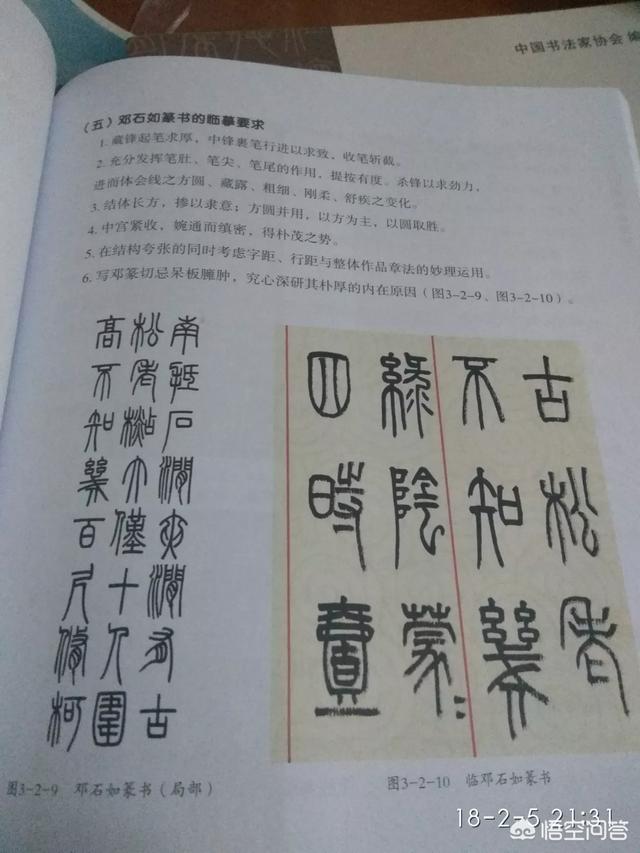 中国书法家协会 编
（五）邓石如篆书的临摹要求
1. 藏锋起笔求厚，中锋裹笔行进以求致，收笔斩截。
2. 充分发挥笔肚、笔尖、笔尾的作用，提按有度。杀锋以求劲力，
进而体会线之方圆、藏露、粗细、刚柔、舒疾之变化。
3. 结体长方，掺以隶意；方圆并用，以方为主，以圆取胜。
4. 中宫紧收，婉通而缜密，得朴茂之势。
5. 在结构夸张的同时考虑字距、行距与整体作品章法的妙理运用。
6. 写邓篆切忌呆板臃肿，究心深研其朴厚的内在原因（图3-2-9、图3-2-10）。
南抵石澗夾澗有古
松老杉大僅十人圍
高不知幾百尺脩柯
古松老
不知幾
綠陰蒙〻
四時
图3-2-9 邓石如篆书（局部）
图3-2-10 临邓石如篆书
18-2-5 21:31
悟空问答